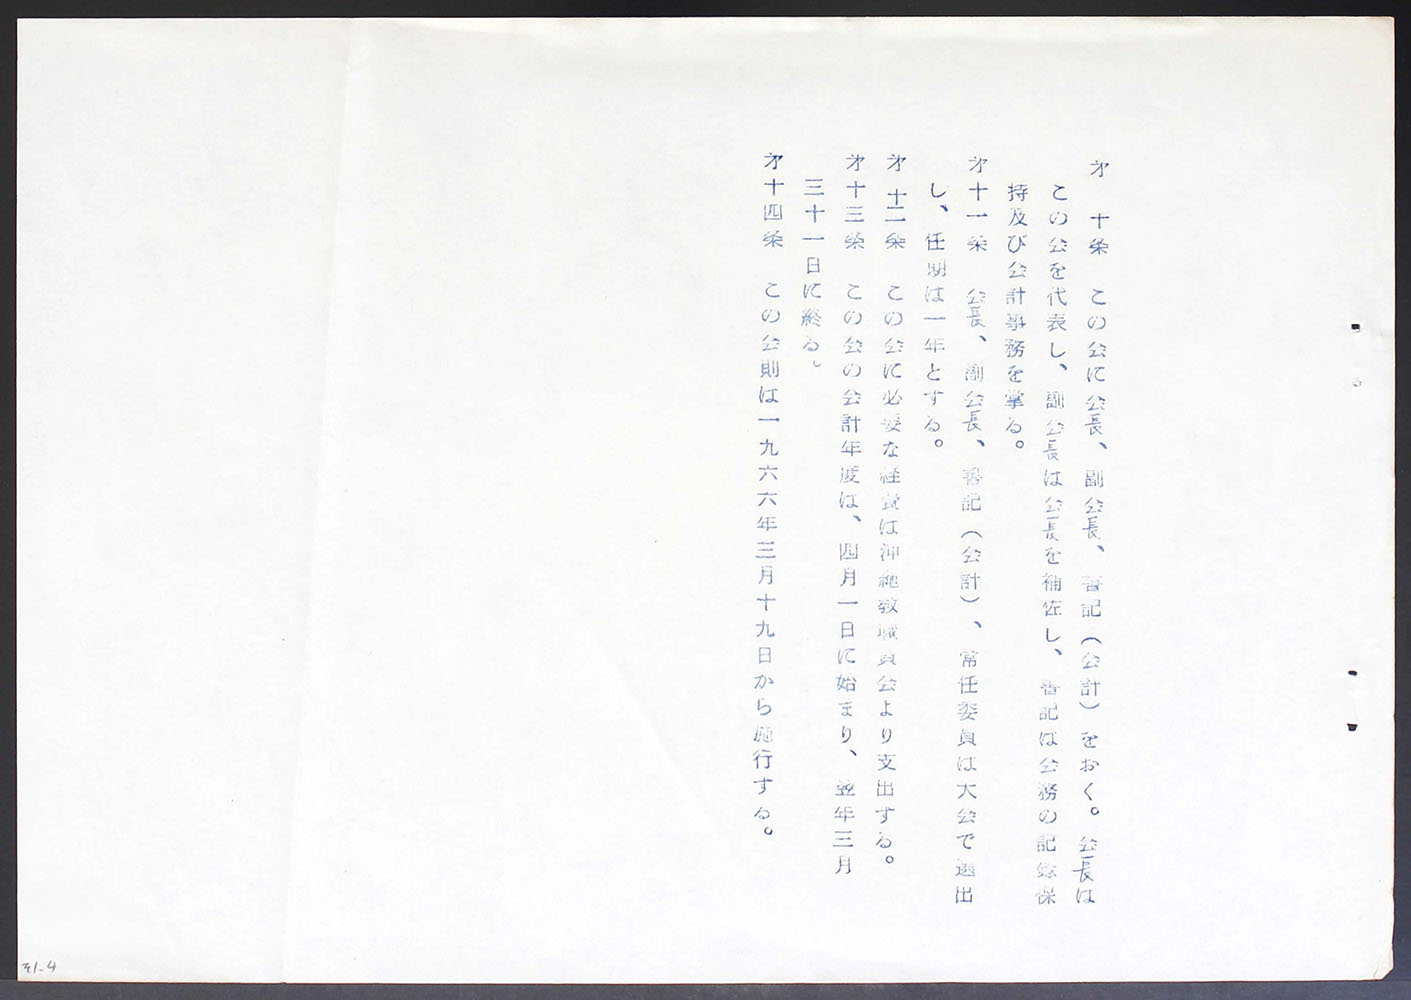 才　十条　この会に会長、副会長、書記（会計）をおく。会長は
この会を代表し、副会長は会長を補佐し、書記は会務の記録保
持及び会計事務を掌る。
才十一条　会長、副会長、書記（会計）、常任委員は大会で選出
し、任期は一年とする。
才十二条　この会に必要な経費は沖縄教職員会より支出する。
才十三条　この会の会計年度は、四月一日に始まり、翌年三月
三十一日に終る。
才十四条　この会則は一九六六年三月十九日から施行する。